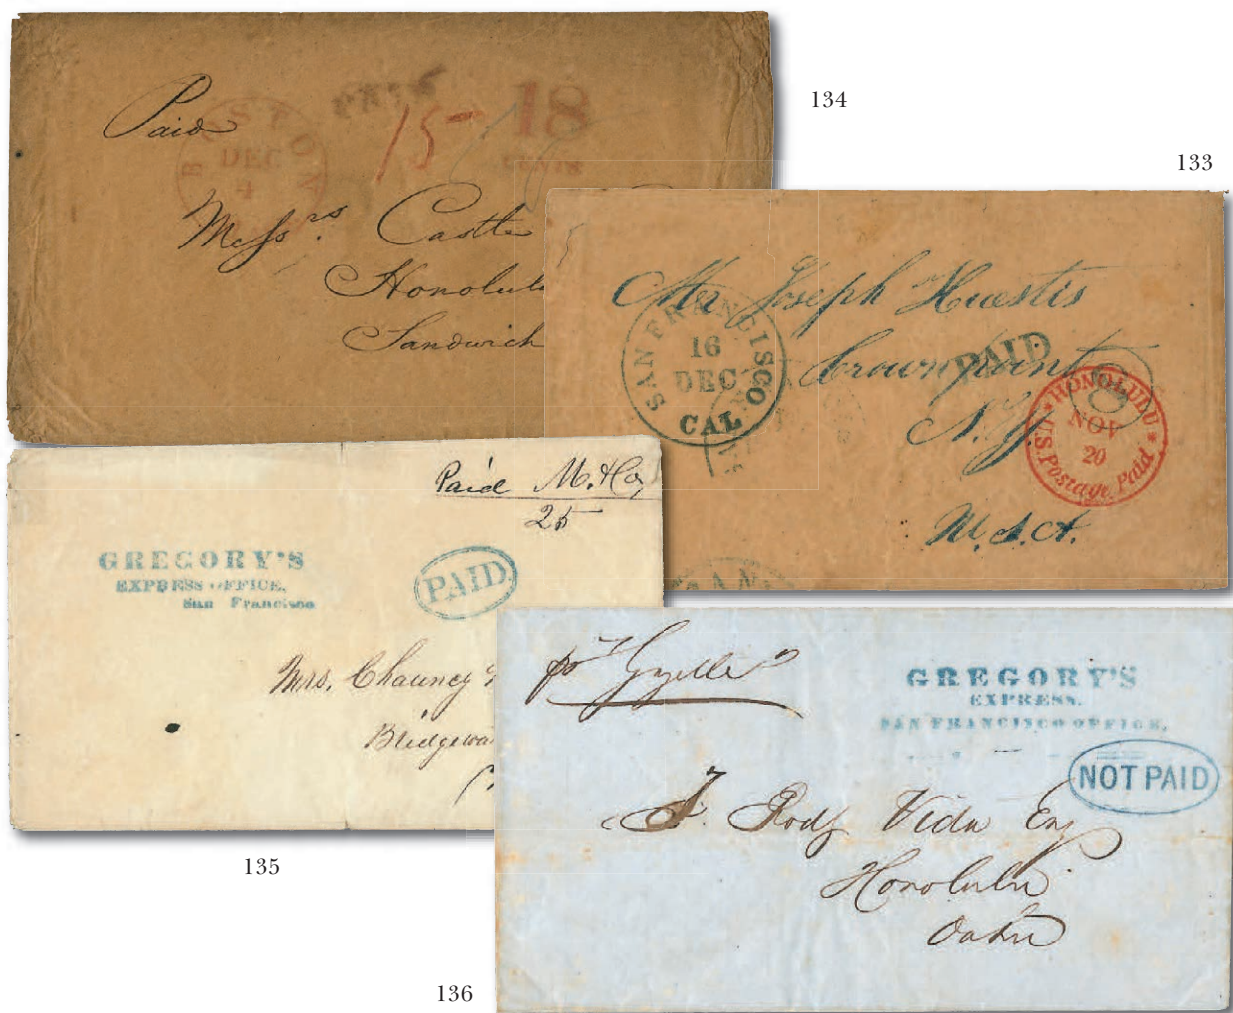 134
Paid
BOSTON
DEC
4
PAID
15
18
cents
Messrs. Castle
Honolulu
Sandwich
133
5
Mr Joseph Huestis
Crown point
N.Y.
U.S.A.
SAN FRANCISCO
16
DEC
CAL.
PAID
8
HONOLULU
NOV
20
U.S. Postage Paid
SAN
Paid M. & Co,
25
GREGORY'S
EXPRESS OFFICE,
San Francisco
PAID
Mrs. Chauncy
135
pr Gazelle
GREGORY'S
EXPRESS.
SAN FRANCISCO OFFICE,
NOT PAID
Vida Esq
Honolulu
Oahu
136